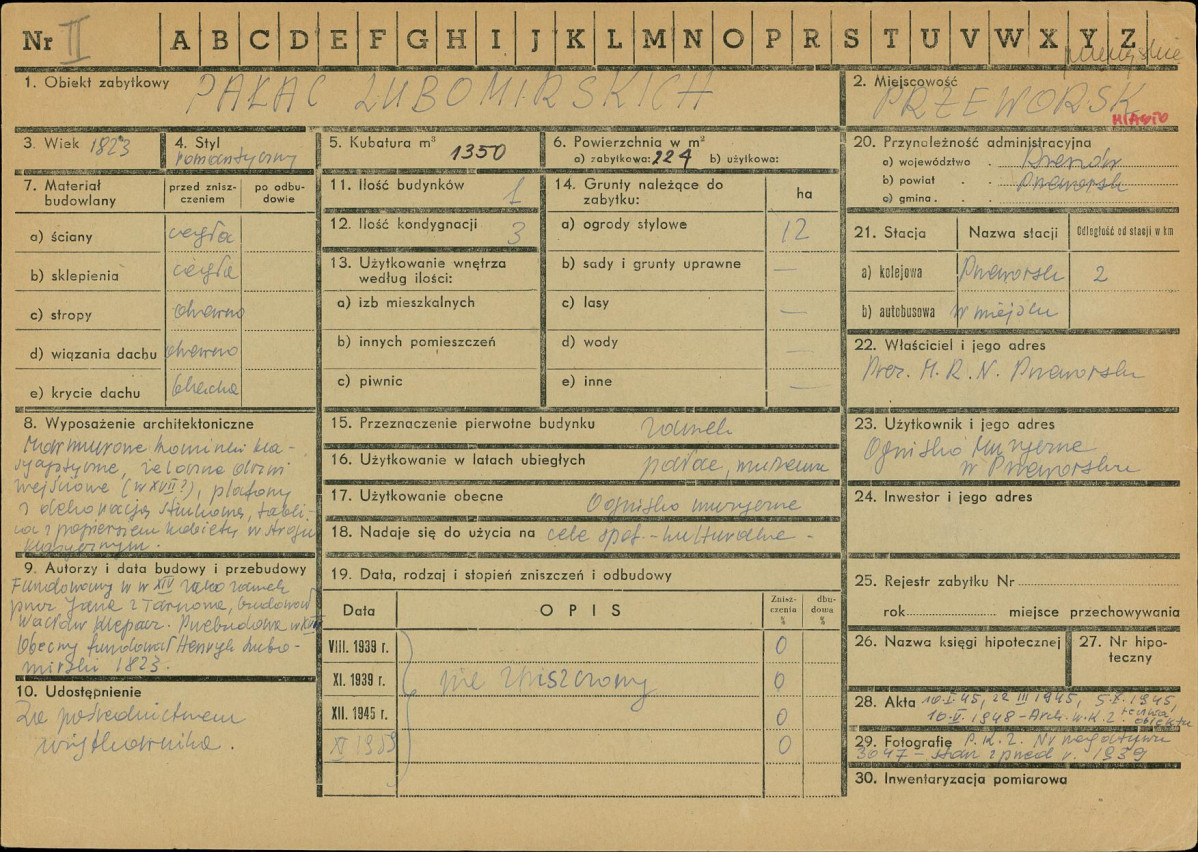 Nr II A B C D E F G H I J K L M N O P R S T U V W X Y Z
1. Obiekt zabytkowy PAŁAC LUBOMIRSKICH
2. Miejscowość PRZEWORSK
MIASTO
3. Wiek 1823
4. Styl romantyczny
5. Kubatura m³ 1350
6. Powierzchnia w m²
a) zabytkowa: 224 b) użytkowa:
7. Materiał budowlany
przed znisz-
czeniem
po odbu-
dowie
a) ściany cegła
b) sklepienia cegła
c) stropy drewno
d) wiązania dachu drewno
e) krycie dachu blacha
8. Wyposażenie architektoniczne
Marmurowe kominki kla-
sycystyczne, żelazne drzwi
wejściowe (w XVII?), plafony
z dekoracją stiukową, tabli-
ca z popiersiem kobiety w stroju
9. Autorzy i data budowy i przebudowy
Fundowany w w XIV jako zamek
przez Jana z Tarnowa, budował
Wacław Przebudowa w
Obecny fundował Henryk Lubo-
mirski 1823.
10. Udostępnienie
Za pośrednictwem
użytkownika.
11. Ilość budynków 1
12. Ilość kondygnacji 3
13. Użytkowanie wnętrza
według ilości:
a) izb mieszkalnych
b) innych pomieszczeń
c) piwnic
14. Grunty należące do
zabytku:
ha
a) ogrody stylowe 12
b) sady i grunty uprawne —
c) lasy —
d) wody —
e) inne —
15. Przeznaczenie pierwotne budynku zamek
16. Użytkowanie w latach ubiegłych pałac, muzeum
17. Użytkowanie obecne Ognisko muzyczne
18. Nadaje się do użycia na cele społ.-kulturalne -
19. Data, rodzaj i stopień zniszczeń i odbudowy
Data OPIS
Znisz-
czenia
%
dbu-
dowa
%
VIII. 1939 r. 0
XI. 1939 r. nie zniszczony 0
XII. 1945 r. 0
XI 1959 0
20. Przynależność administracyjna
a) województwo . Rzeszów
b) powiat . . Przeworsk
c) gmina . .
21. Stacja Nazwa stacji Odległość od stacji w km
a) kolejowa Przeworsk 2
b) autobusowa w miejscu
22. Właściciel i jego adres
Prez. M. R. N. Przeworsk
23. Użytkownik i jego adres
Ognisko Muzyczne
w Przeworsku
24. Inwestor i jego adres
25. Rejestr zabytku Nr
rok miejsce przechowywania
26. Nazwa księgi hipotecznej
27. Nr hipo-
teczny
28. Akta 10.I.45, 22 III 1945, 5.X.1945,
10.V.1948 - Arch. W.K.Z. teczka obiektu
29. Fotografie P.K.Z. Nr negatywu
3647 - stan sprzed r. 1939
30. Inwentaryzacja pomiarowa